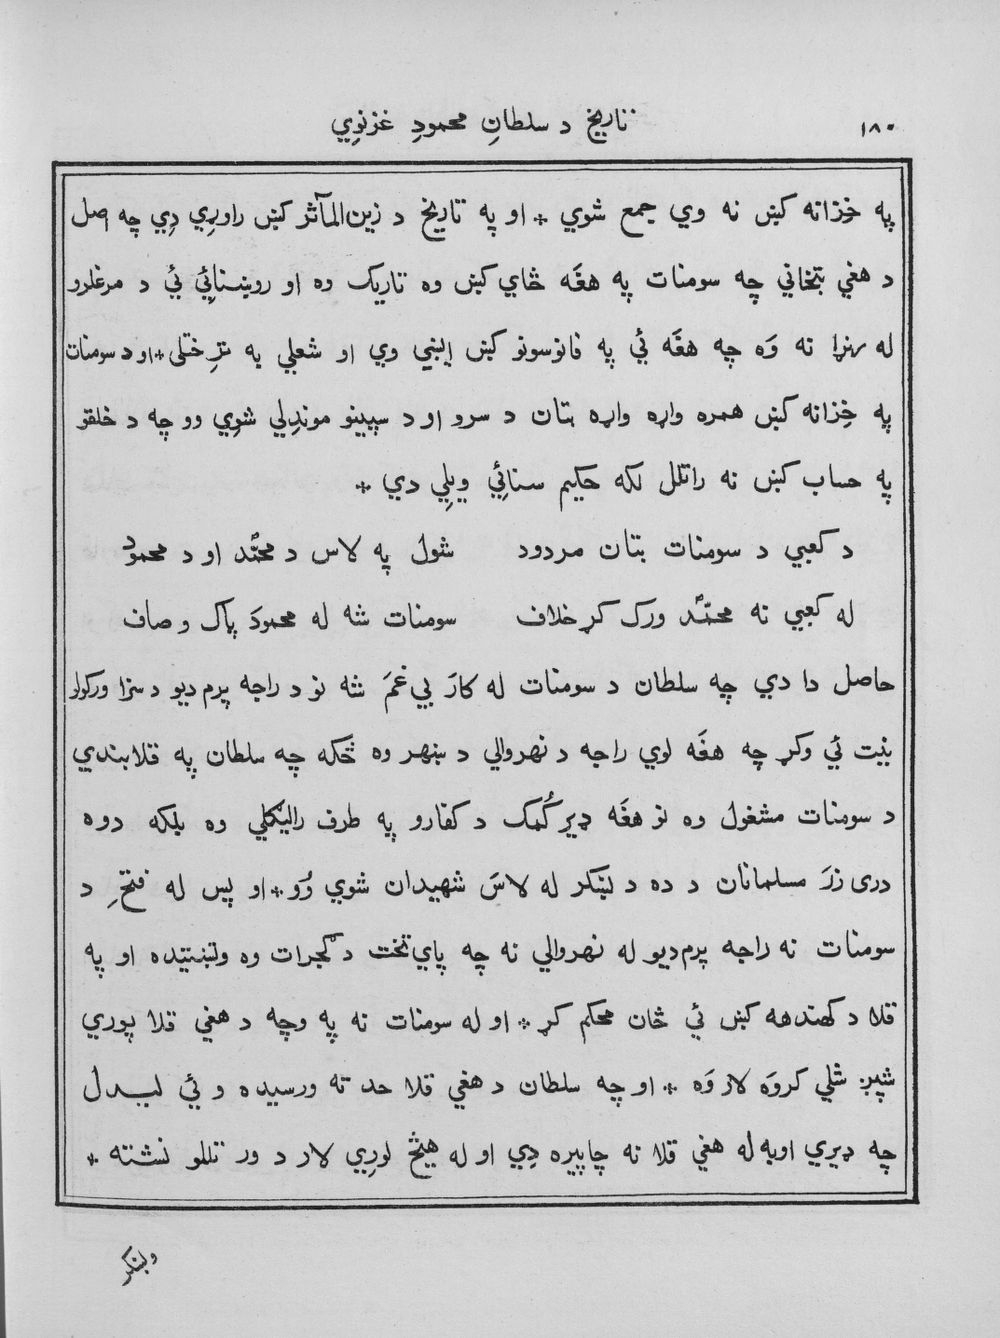 ١٨٠ تاريخ د سلطانِ محمودِ غزنوِي
په خزانه کښ نه وي جمع شوي * او په تاريخ د زين المآثر کښ راوړِي دِي چه اصل
د هغي بتخاني چه سومنات په هغَه ځاي کښ وه تاريک وه او روښنائِي ئي د مرغلرو
له رنړا نه وَه چه هغَه ئي په فانوسونو کښ اِيښي وي او شعلي په تر ختلی * او د سومنات
په خِزانه کښ همره واړه واړه بتان د سرو او د سپينو موندِلي شوِي وو چه د خلقو
په حساب کښ نه راتلل لکه حکيم سنائِي ويلِي دي *
د کعبي د سومنات بتان مردود شول په لاس د محمّد او د محمود
له کعبي نه محمّد ورک کړ خلاف سومنات شه له محمودَ پاک و صاف
حاصل دا دي چه سلطان د سومنات له کارَ بي غمَ شه نو د راجه پرم ديو د سزا ورکولو
نيت ئي وکړ چه هغَه لوي راجه د نهروالي د ښهر وه ځکه چه سلطان په قلابندي
د سومنات مشغول وه نو هغَه ډير کُمک د کفارو په طرف راليګلي وه بلکه دوه
دری زرَ مسلمانان د ده د لښکر له لاسَ شهيدان شوي وُو * او پس له فتحِ د
سومنات نه راجه پرم ديو له نهروالي نه چه پاي تخت د ګجرات وه وتښتيده او په
قلا د کهندهه کښ ئي ځان محکم کړ * او له سومنات نه په وچه د هغي قلا پوري
شپږ شلي کروَه لار وَه * او چه سلطان د هغي قلا حد ته ورسيده و ئي ليدل
چه ډيري اوبه له هغي قلا نه چاپيره دِي او له هيڅ لورِي لار د ور تللو نشته *
ولښکر